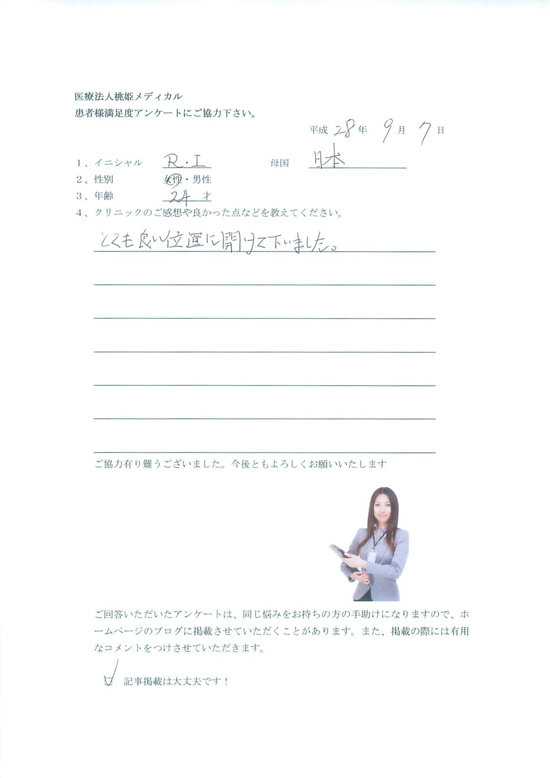 医療法人桃姫メディカル
患者様満足度アンケートにご協力下さい。
平成 28 年 9 月 7 日
1、イニシャル R・I 母国 日本
2、性別 女性・男性
3、年齢 24 才
4、クリニックのご感想や良かった点などを教えてください。
とても良い位置に開けて下いました。
ご協力有り難うございました。今後ともよろしくお願いいたします
ご回答いただいたアンケートは、同じ悩みをお持ちの方の手助けになりますので、ホ
ームページのブログに掲載させていただくことがあります。また、掲載の際には有用
なコメントをつけさせていただきます。
記事掲載は大丈夫です！